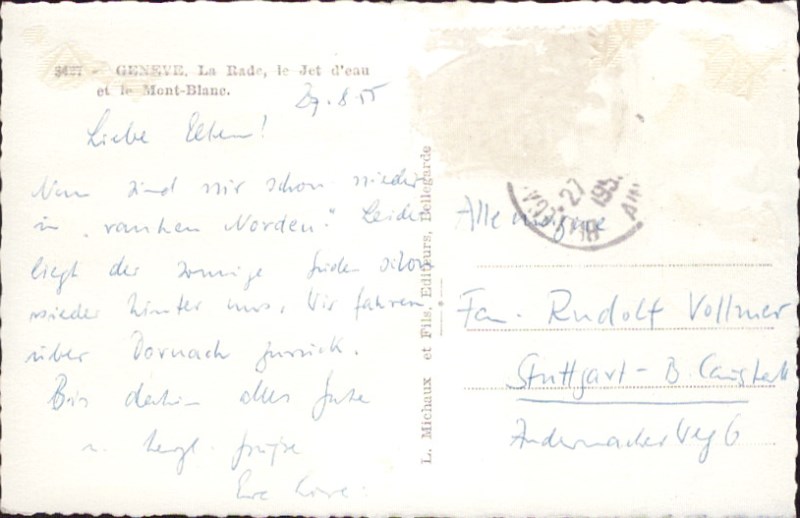 3487 - GENEVE. La Rade, le Jet d'eau
et le Mont-Blanc.
29.8.55
Liebe Eltern!
Nun sind wir schon wieder
im "rauhen Norden." Leider
liegt der sonnige Süden schon
wieder hinter uns. Wir fahren
über Dornach zurück.
Bis dahin alles Gute
u. herzl. Grüße
Eure
L. Michaux et Fils, Editeurs, Bellegarde
Allemagne
Fam. Rudolf Vollmer
Stuttgart - B. Cannstatt
Andernacher Weg 6
27
195
AIN